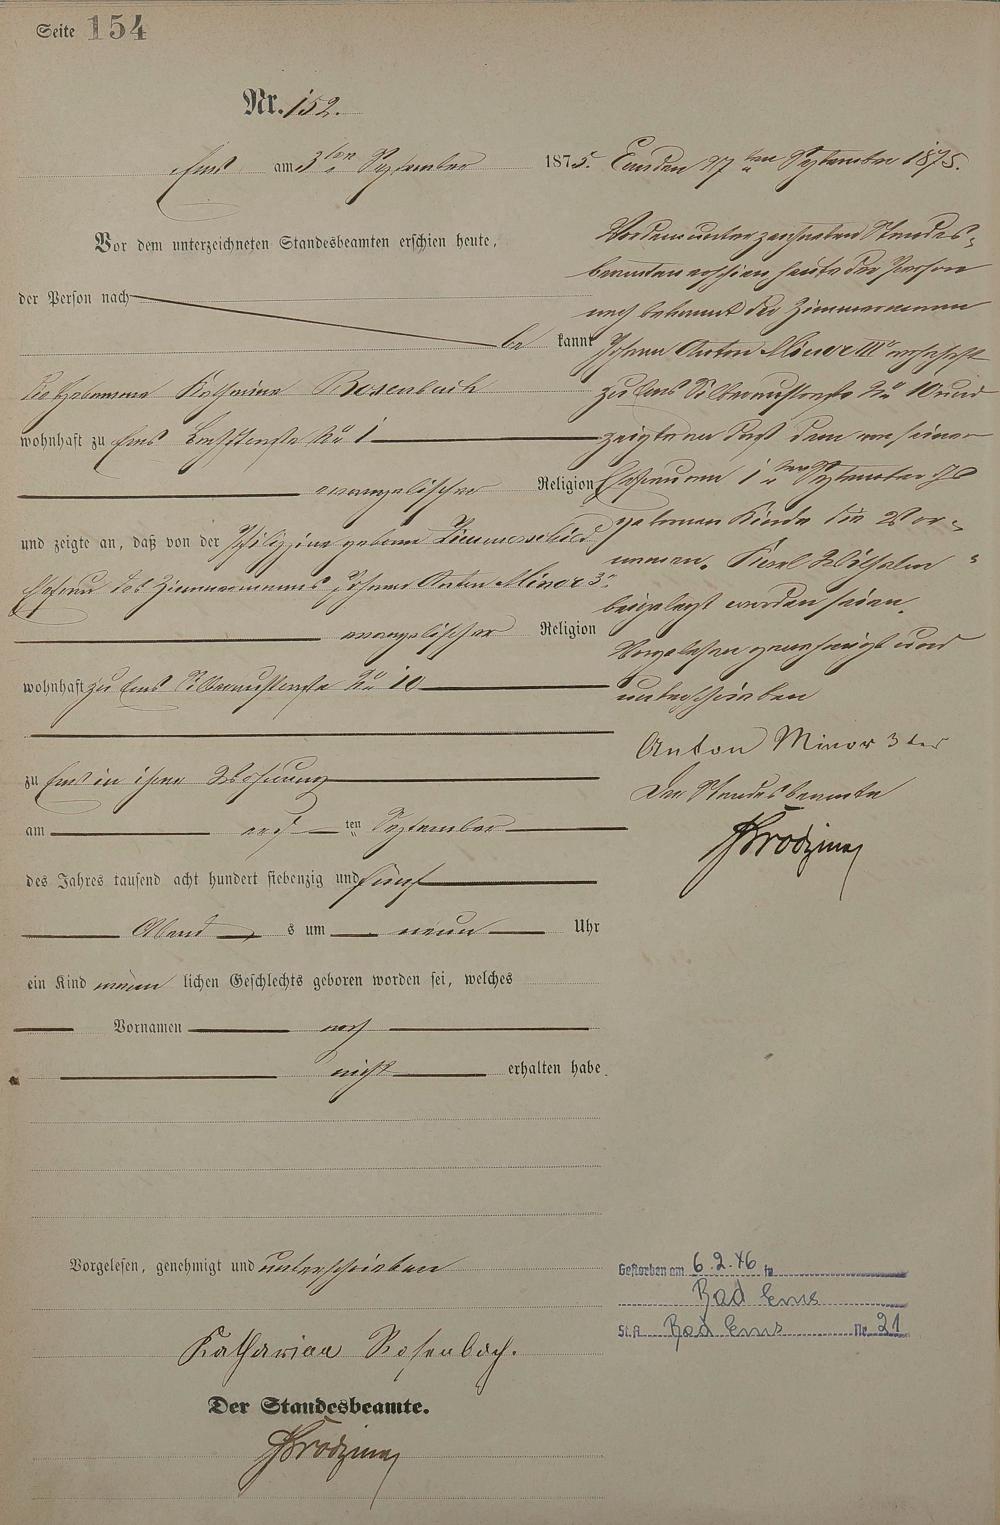 Seite 154
Nr. 152.
Ems am 3ten September 1875.
Vor dem unterzeichneten Standesbeamten erschien heute,
der Person nach
be kannt
die Hebamme Katharina Rosenbach
wohnhaft zu Ems No 1
evangelischer Religion
und zeigte an, daß von der Philippine geborne
Ehefrau des Zimmermanns Johann Anton Minor 3r
evangelischer Religion
wohnhaft zu Ems Silberaustraße No 10
zu Ems in ihrer Wohnung
am ersten September
des Jahres tausend acht hundert siebenzig und fünf
Abend s um neun Uhr
ein Kind männlichen Geschlechts geboren worden sei, welches
Vornamen noch
nicht erhalten habe.
Vorgelesen, genehmigt und unterschrieben
Katharina Rosenbach.
Der Standesbeamte.
Ems den 27ten September 1875.
Vor dem unterzeichneten Standes-
beamten erschien heute der Person
nach bekannt der Zimmermann
Johann Anton Minor III wohnhaft
zu Ems Silberaustraße No 10 und
zeigte an daß dem von seiner
Ehefrau am 1ten September
geborenen Kinde die Vor-
namen. Karl Wilhelm
beigelegt worden seien.
Vorgelesen genehmigt und
unterschrieben
Anton Minor 3ter
Der Standesbeamte
Gestorben am 6.2.46 in
Bad Ems
St.A. Bad Ems Nr. 21